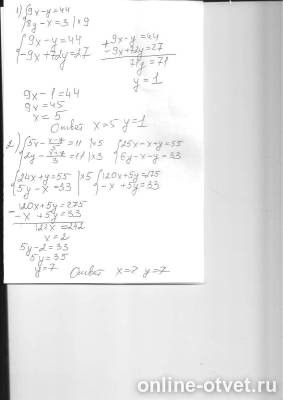 1) { 9x-y=44
8y-x=3 | x9
{ 9x-y=44
-9x+72y=27
+ 9x-y=44
-9x+72y=27
71y=71
y=1
9x-1=44
9x=45
x=5
Ответ x=5 y=1
2) { 5x-(x-y)/5=11 | x5
2y-(x+y)/3=11 | x3
{ 25x-x+y=55
6y-x-y=33
{ 24x+y=55 | x5
5y-x=33
{ 120x+5y=275
-x+5y=33
- 120x+5y=275
-x+5y=33
121x=242
x=2
5y-2=33
5y=35
y=7
Ответ x=2 y=7
online-otvet.ru